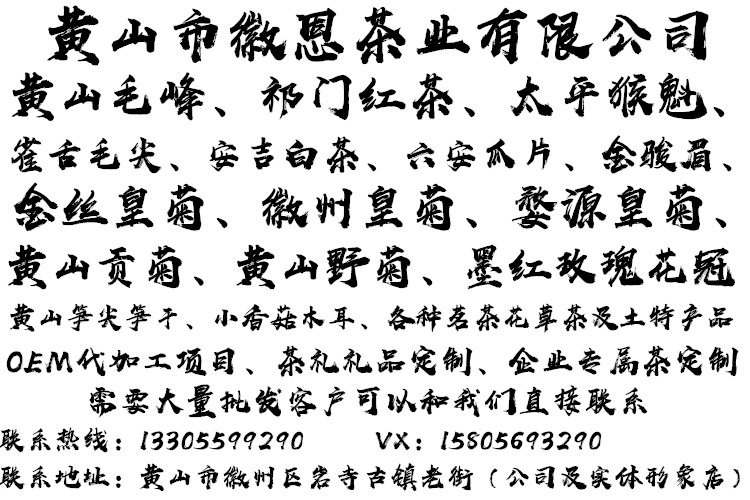 黄山市徽恩茶业有限公司
黄山毛峰、祁门红茶、太平猴魁、
雀舌毛尖、安吉白茶、六安瓜片、金骏眉、
金丝皇菊、徽州皇菊、婺源皇菊、
黄山贡菊、黄山野菊、墨红玫瑰花冠
黄山笋尖笋干、小香菇木耳、各种茗茶花草茶及土特产品
OEM代加工项目、茶礼礼品定制、企业专属茶定制
需要大量批发客户可以和我们直接联系
联系热线：13305599290 VX：15805693290
联系地址：黄山市徽州区岩寺古镇老街（公司及实体形象店）